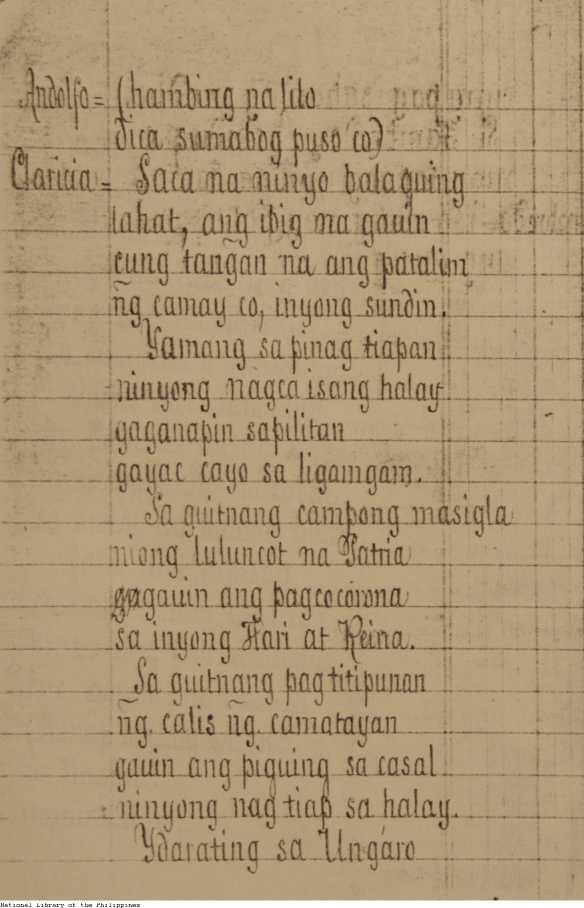 Andolfo = (hambing na lilo
dica sumabog puso co)
Claricia = Saca na ninyo balaguing
lahat, ang ibig ma gauin
cung tangan na ang patalim
n͠g camay co, inyong sundin.
Yamang sa pinag tiapan
ninyong nagca isang halay
gaganapin sapilitan
gayac cayo sa ligamgam.
Sa guitnang campong masigla
niong luluncot na Patria
gagauin ang pagcocorona
sa inyong Hari at Reina.
Sa guitnang pagtitipunan
n͠g. calis n͠g. camatayan
gauin ang piguing sa casal
ninyong nag tiap sa halay.
Ydarating sa Ungaro
National Library of the Philippines